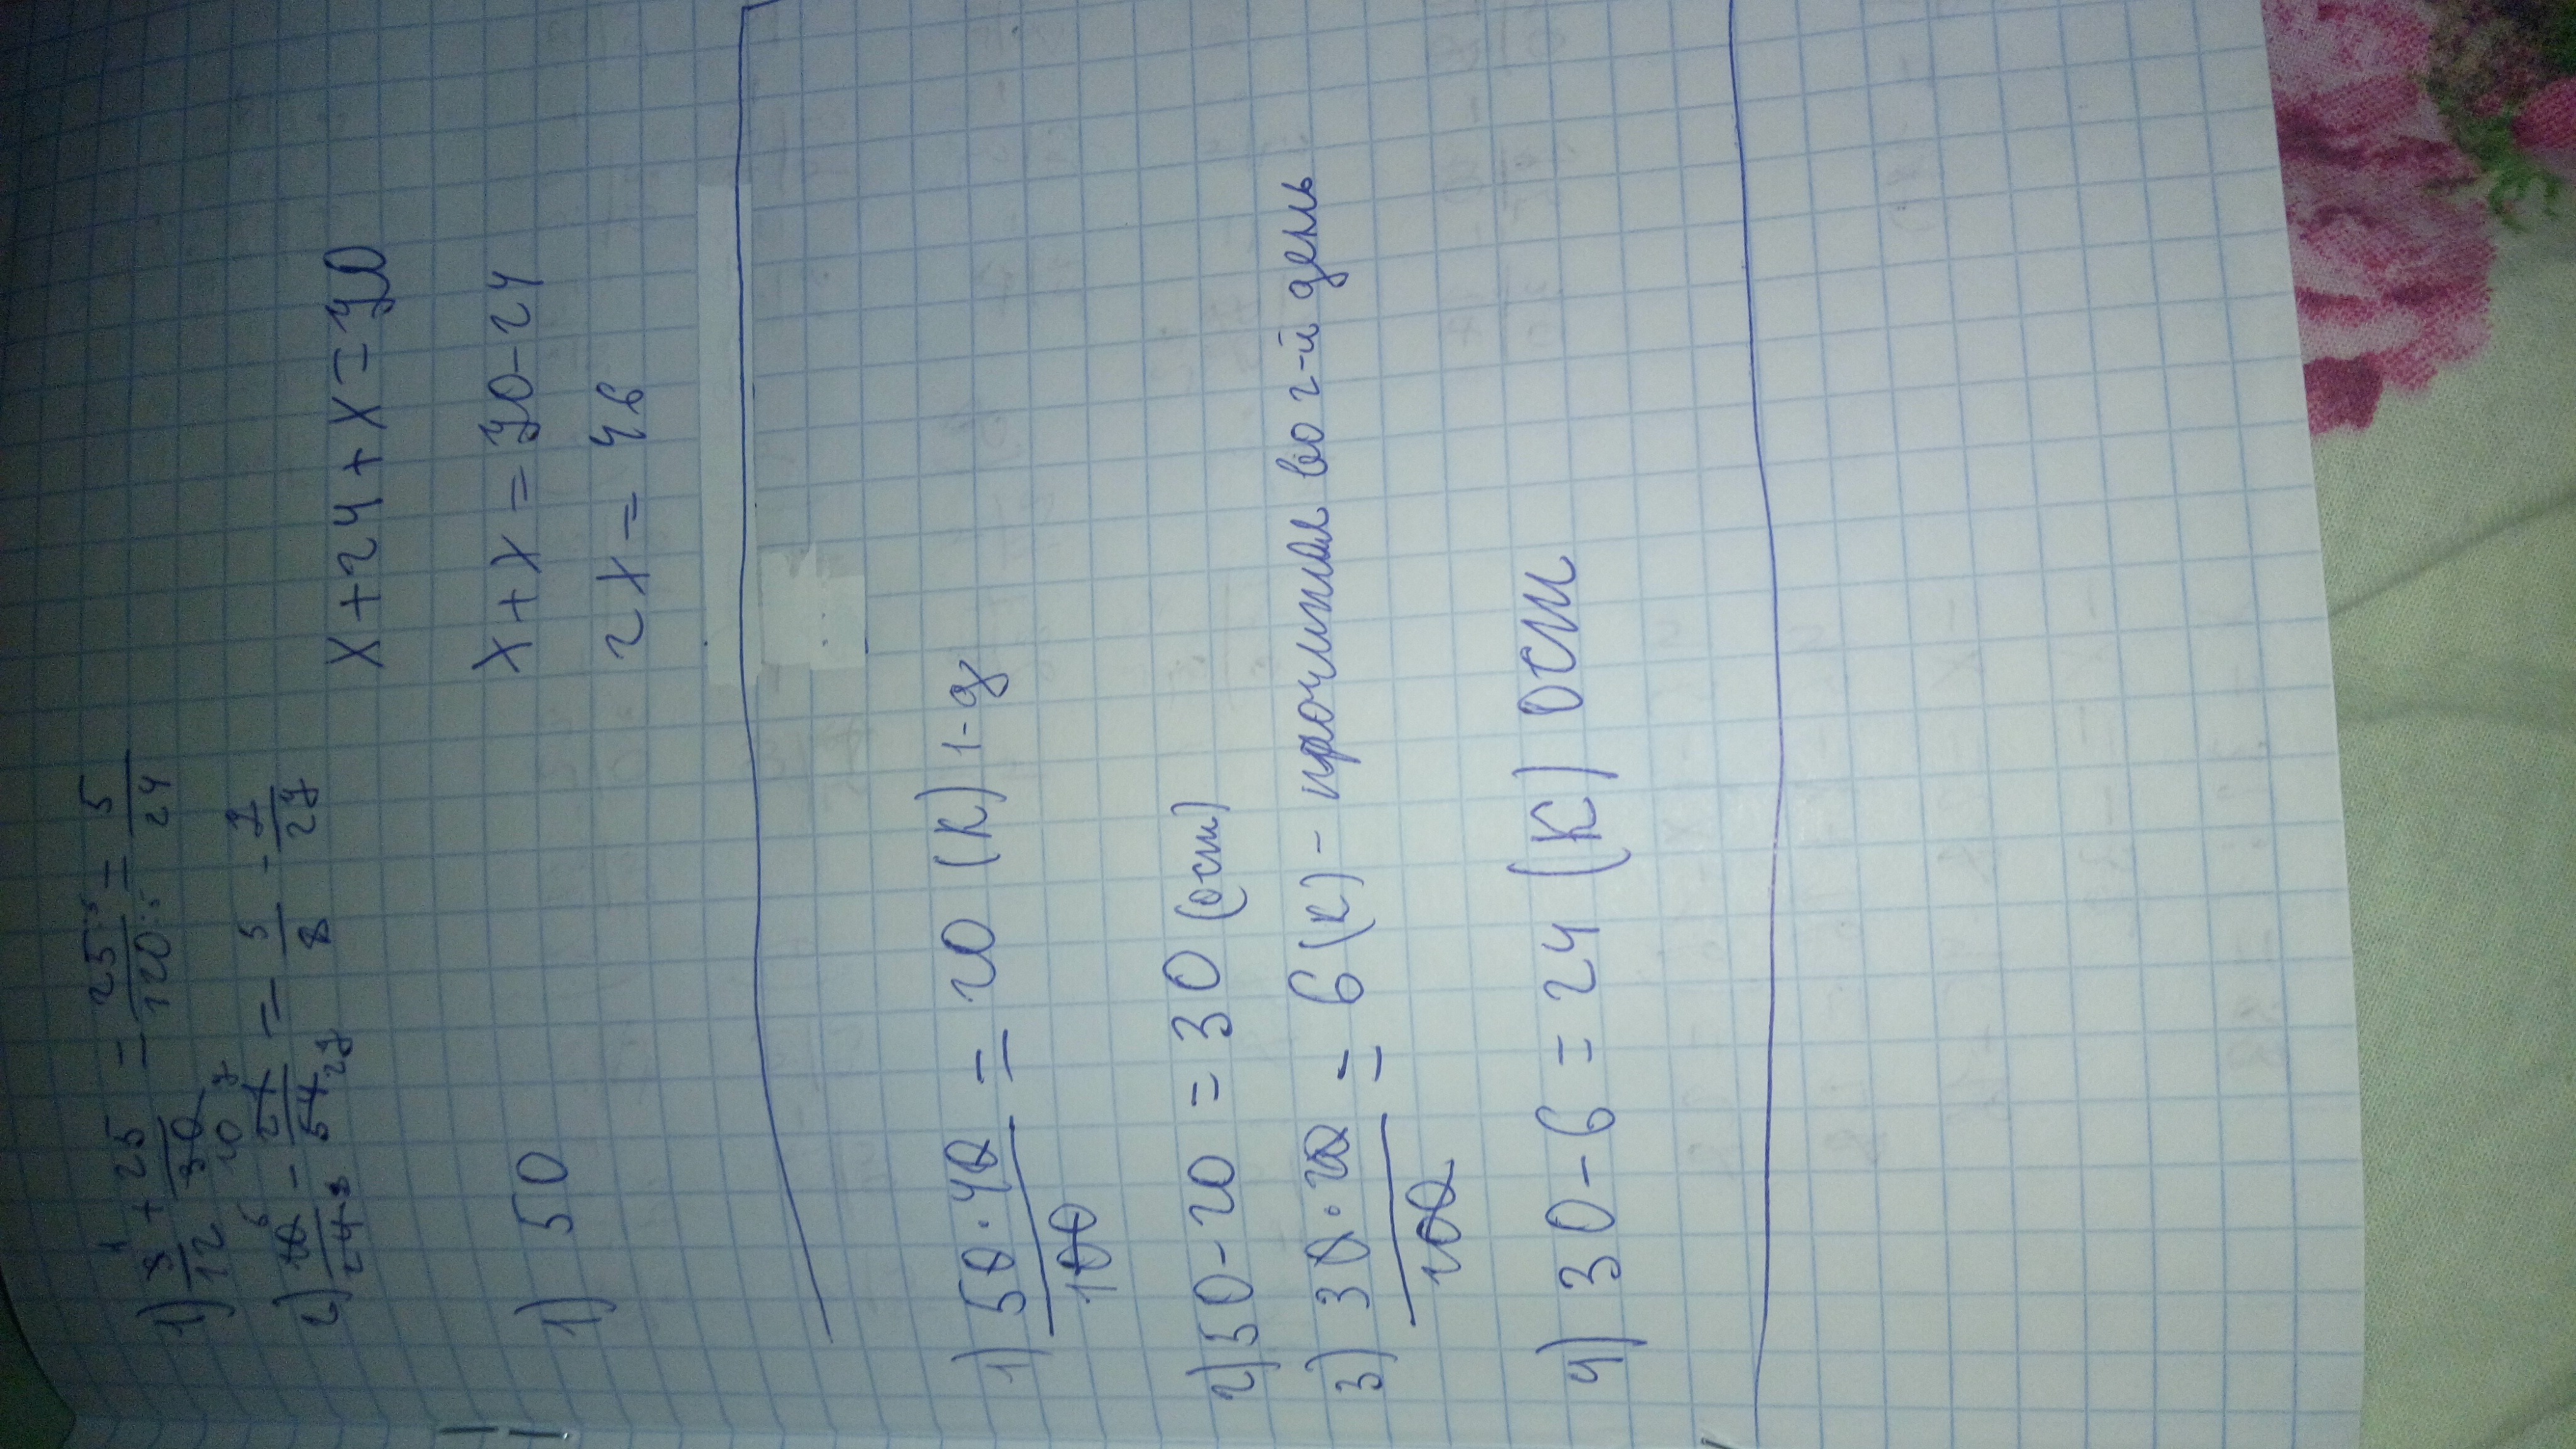 1) 3/12 + 25/30 = 25:5/120:5 = 5/24
2) 18/24 - 21/54 = 5/8 - 7/27
x+24+x=70
x+x=70-24
2x=46
1) 50
1) 50·40/100 = 20 (к) 1-д
2) 50-20=30 (ост)
3) 30·20/100 = 6 (к) - прочитал во 2-й день
4) 30-6=24 (к) ост